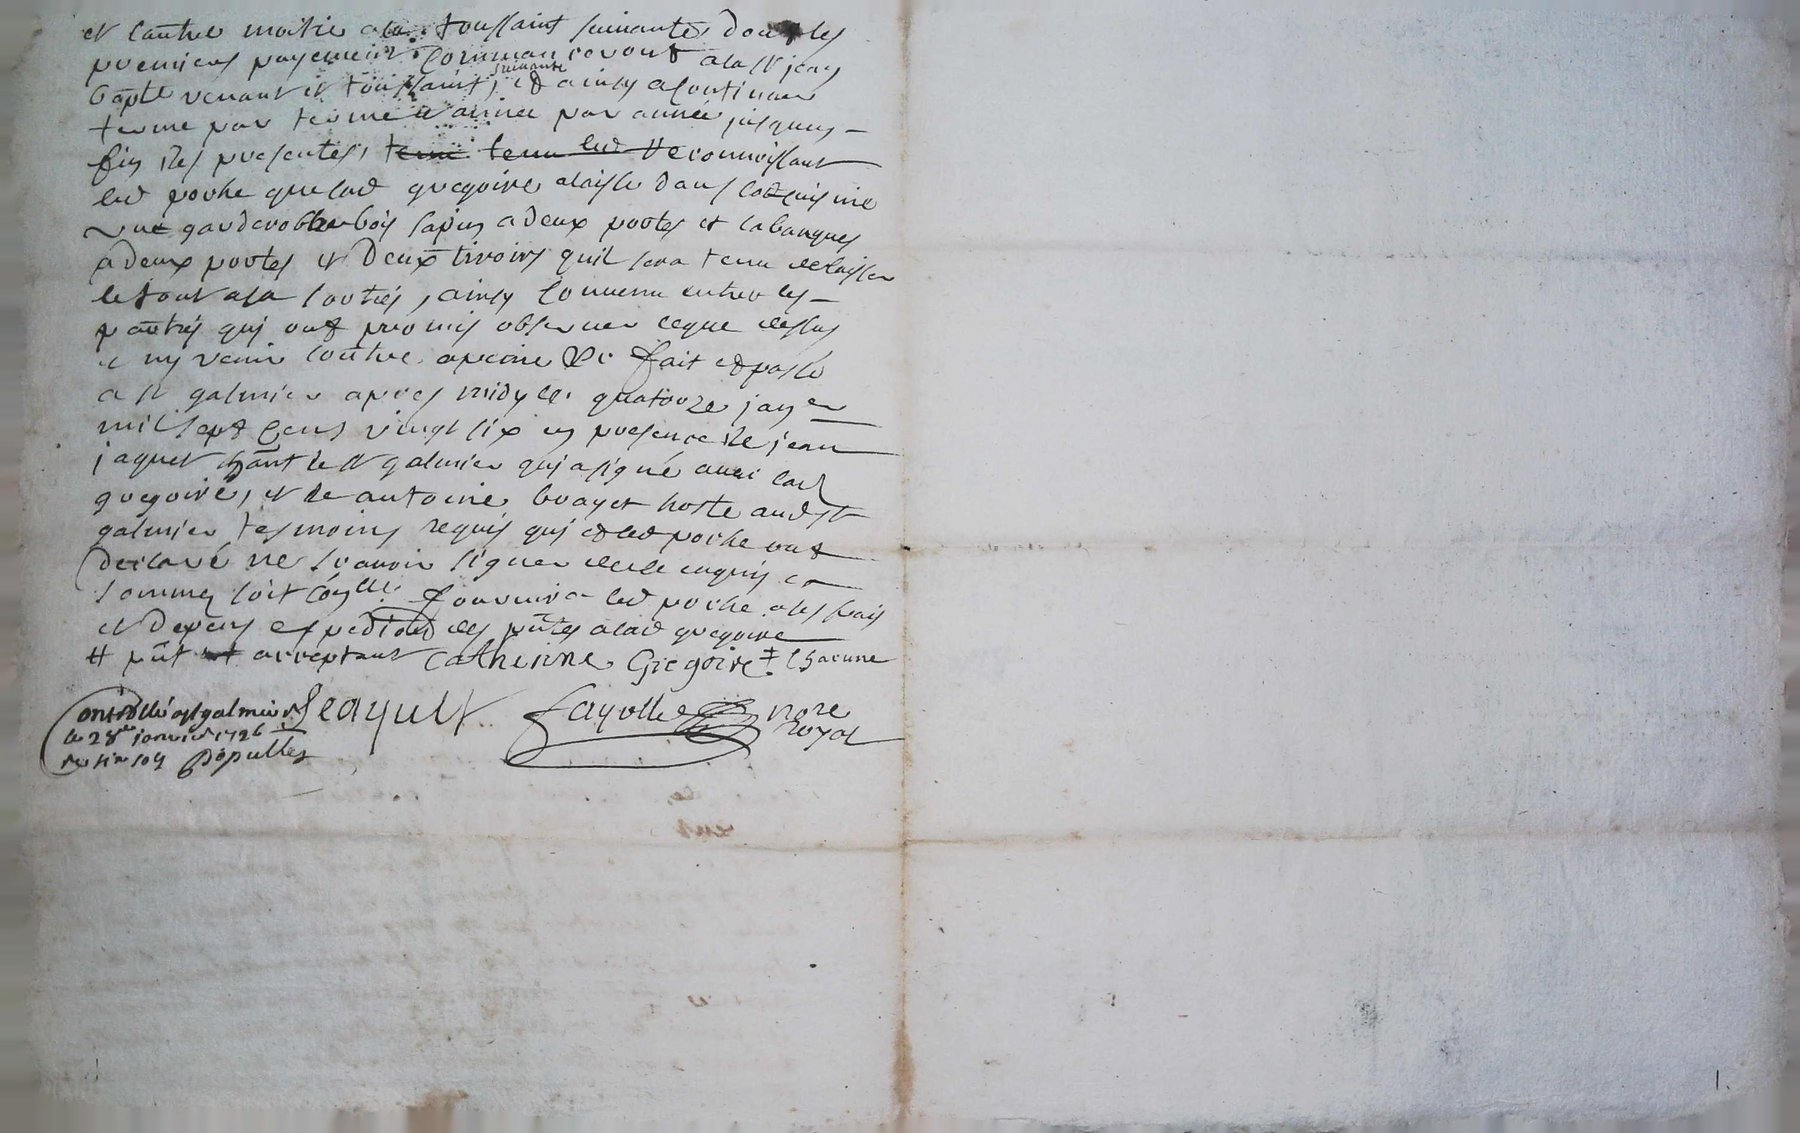 et lautre moitie a la toussaint suivante, dont les
premiers payement commanceront a la st jean
bapte venant et toussaint suivante, et ainsy a continuer
terme par terme et année par année jusques
fin des presentes, reconnoissant
led poche que lad gregoire a laissé dans lad cuisine
une garderobbe bois sapin a deux portes et
a deux portes et deux tiroirs quil sera tenu de laisser
le tout a sa sortie, ainsy convenu entre les
parties qui ont promis observer ce que dessus
et ny venir contre a peine &c fait et passé
a st galmier apres midy le quatorze janer
mil sept cens vingt six en presence de jean
jaquet de st galmier qui a signé avec lad
gregoire, et de antoine boayet hoste aud st
galmier tesmoins requis qui et led poche ont
declaré ne scavoir signer de ce enquis et
sommes soit con_lle fournira led poche a ses frais
et depens expedition des pntes a lad gregoire
pnt acceptant Catherine Gregoire chacune
Jeaquet Fayolle nore
royal
Controllé a st galmier
le 28e janvier 1726
Depulles